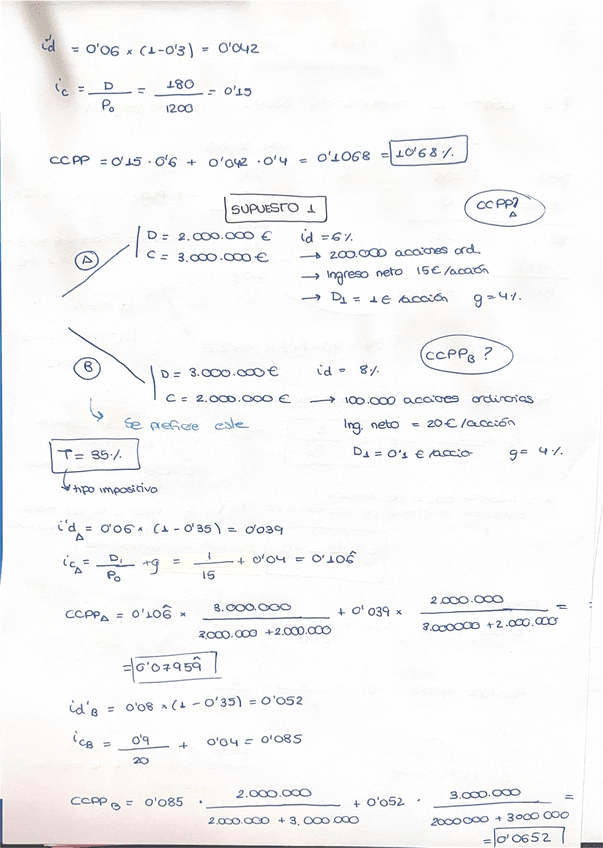 i'd = 0'06 × (1-0'3) = 0'042
ic = D / P0 = 180 / 1200 = 0'15
CCPP = 0'15 · 0'6 + 0'042 · 0'4 = 0'1068 = 10'68%
SUPUESTO 1
CCPP A ?
A
D = 2.000.000 € id = 6%
C = 3.000.000 € → 200.000 acciones ord.
→ Ingreso neto 15€/acción
→ D1 = 1€/acción g = 4%
CCPP B ?
B
D = 3.000.000 € id = 8%
C = 2.000.000 € → 100.000 acciones ordinarias
Se prefiere este
Ing. neto = 20€/acción
T = 35%
D1 = 0'1 €/accio g = 4%
tipo impositivo
i'dA = 0'06 × (1 - 0'35) = 0'039
icA = D1 / P0 + g = 1 / 15 + 0'04 = 0'106̂
CCPPA = 0'106̂ × 3.000.000 / 3.000.000 + 2.000.000 + 0'039 × 2.000.000 / 3.000000 + 2.000.000 =
= 0'07959̂
id'B = 0'08 × (1 - 0'35) = 0'052
icB = 0'9 / 20 + 0'04 = 0'085
CCPP B = 0'085 · 2.000.000 / 2.000.000 + 3.000.000 + 0'052 · 3.000.000 / 2000000 + 3000 000 =
= 0'0652